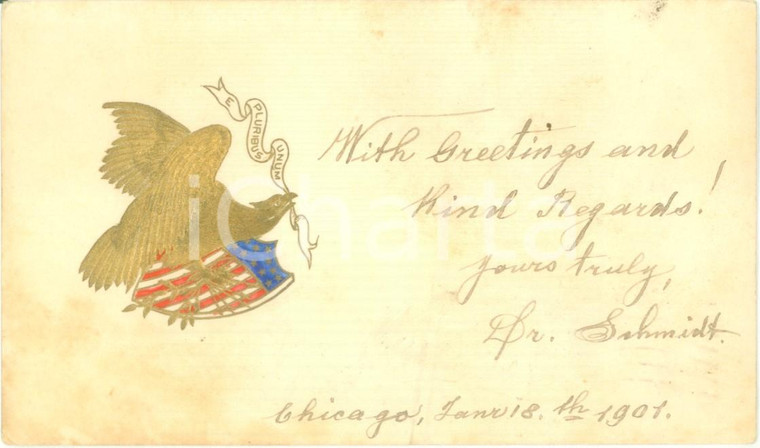 E PLURIBUS UNUM
With Greetings and
Kind Regards!
Yours truly,
Dr. Schmidt.
Chicago, Janr 18.th 1901.
iCharta